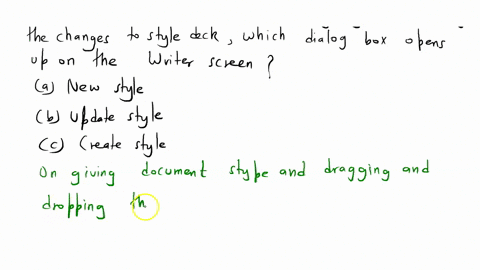 the changes to style deck, which dialog box opens
up on the Writer screen?
(a) New style
(b) Update style
(c) Create style
On giving document stype and dragging and
dropping th